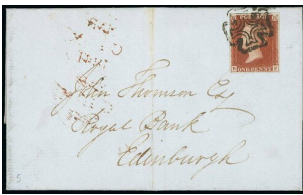 POSTAGE
ONE PENNY
John Thomson Esq
Royal Bank
Edinburgh